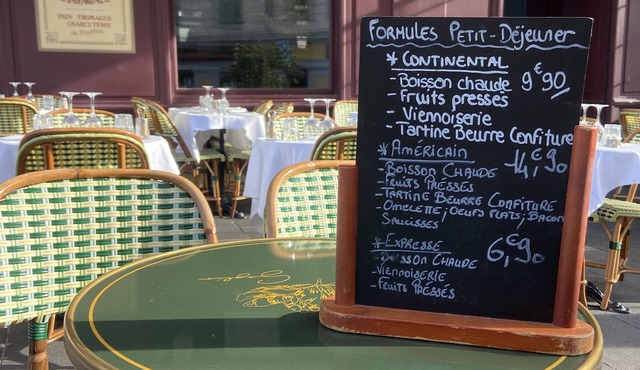 PAIN FROMAGES
CHARCUTERIE
Formules Petit-Déjeuner
* CONTINENTAL 9€90
- Boisson chaude
- Fruits pressés
- Viennoiserie
- Tartine Beurre Confiture
* AMÉRICAIN 14,€90
- BOISSON CHAUDE
- FRUITS PRESSÉS
- TARTINE BEURRE CONFITURE
- OMELETTE, OEUFS PLATS, BACON
SAUCISSES
* EXPRESSE 6,€90
- BOISSON CHAUDE
- VIENNOISERIE
- FRUITS PRESSÉS